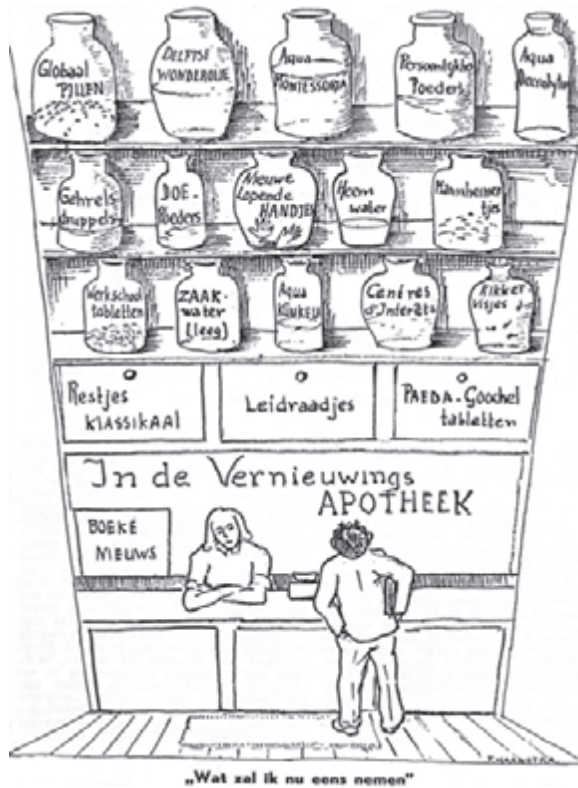 Globaal
PILLEN
DELFTSE
WONDEROLIE
Aqua
MONTESSORIA
Persoonlijke
Poeders
Aqua
Gehrels
druppels
DOE-
Poeders
Nieuwe
Lopende
HANDJES
Hoorn
water
Mannheimer
tjes
Werkschool
tabletten
ZAAK-
water
(leeg)
Aqua
KUNKELI
Centres
d'Interêts
KIKKER
visjes
Restjes
KLASSIKAAL
Leidraadjes
PAEDA-Goochel
tabletten
In de Vernieuwings
APOTHEEK
BOEKE
NIEUWS
„Wat zal ik nu eens nemen”